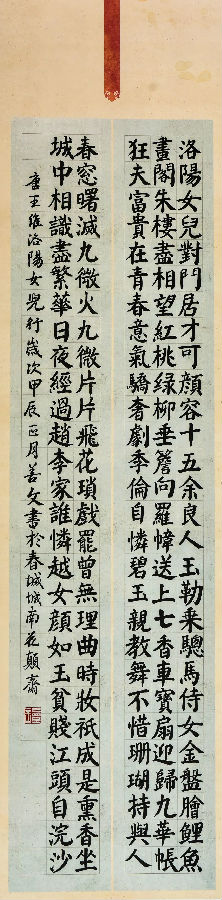 洛陽女兒對門居才可顏容十五余良人玉勒乘驄馬侍女金盤膾鯉魚
畫閣朱樓盡相望紅桃綠柳垂簷向羅幃送上七香車寶扇迎歸九華帳
狂夫富貴在青春意氣驕奢劇季倫自憐碧玉親教舞不惜珊瑚持與人
春窓曙滅九微火九微片片飛花瑣戲罷曾無理曲時妝成祇是熏香坐
城中相識盡繁華日夜經過趙李家誰憐越女顏如玉貧賤江頭自浣沙
唐王維洛陽女兒行歲次甲辰正月善文書於春城城南花顛齋